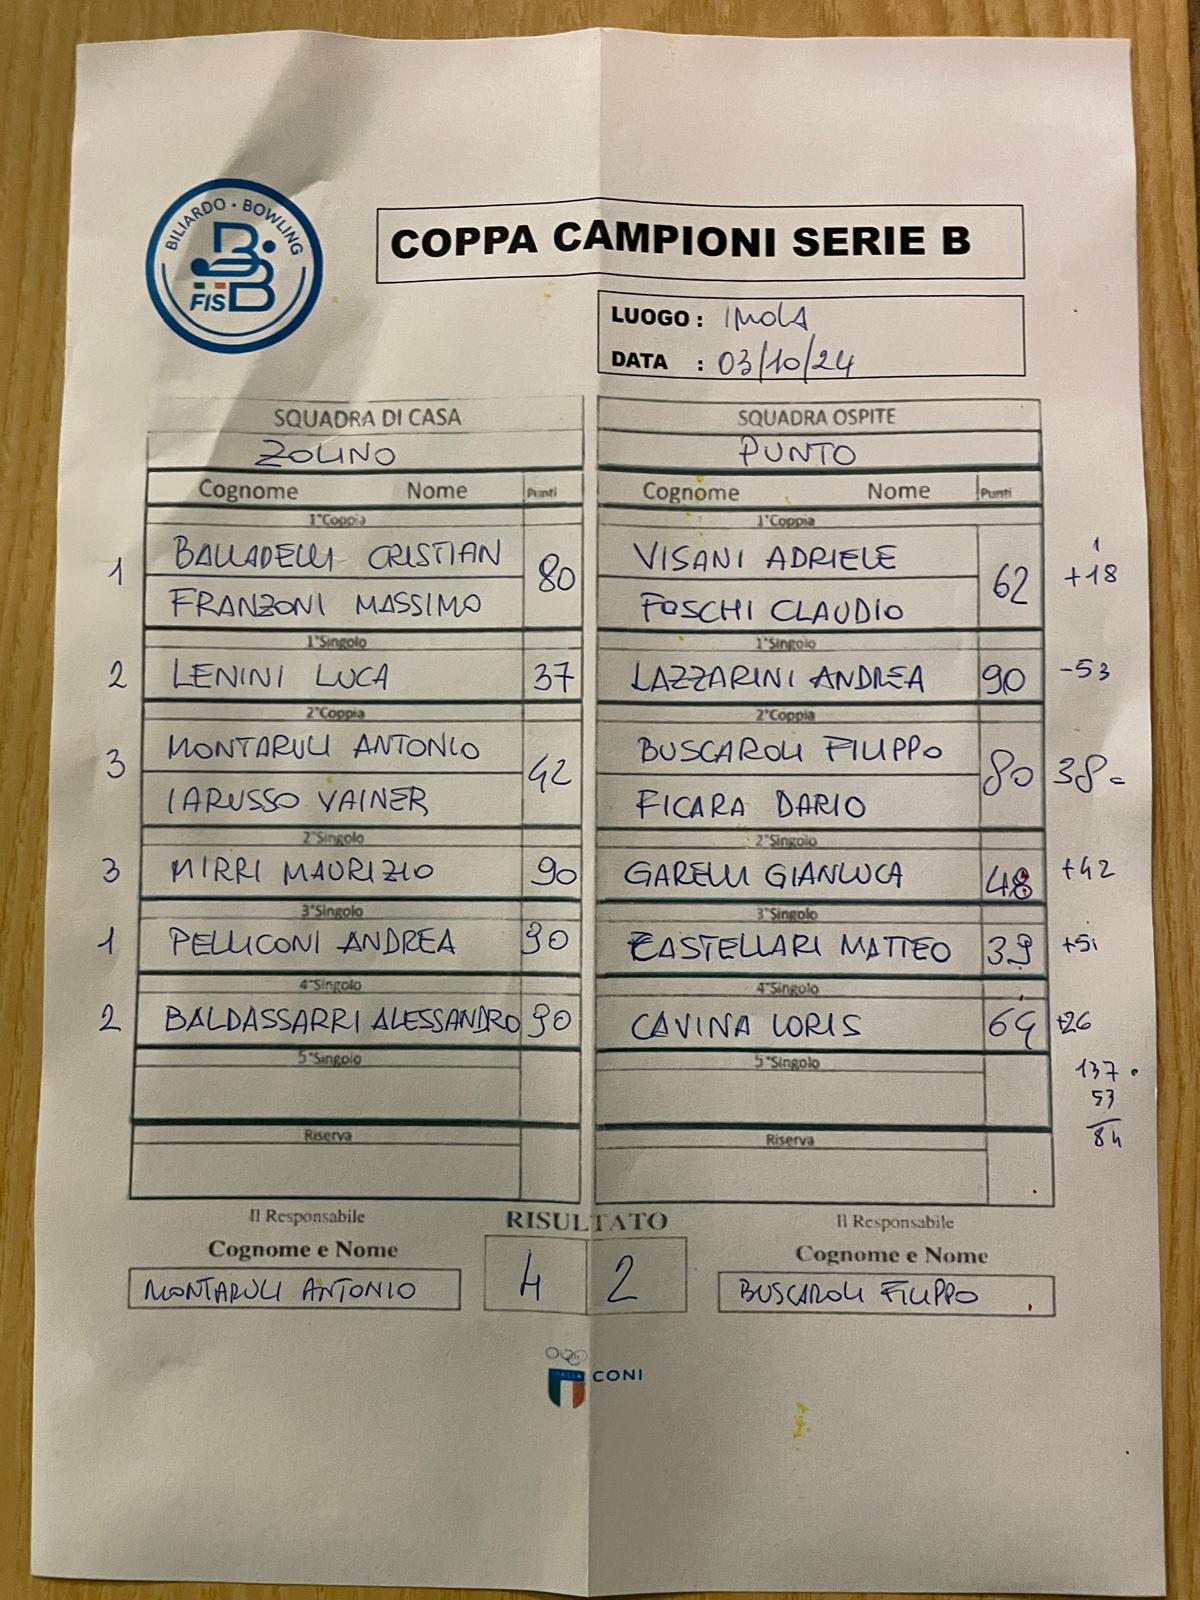 BILIARDO • BOWLING
FISBB
COPPA CAMPIONI SERIE B
LUOGO : IMOLA
DATA : 03/10/24
SQUADRA DI CASA SQUADRA OSPITE
ZOLINO PUNTO
Cognome Nome Punti Cognome Nome Punti
1°Coppia 1°Coppia
1 BALLADELLI CRISTIAN 80 VISANI ADRIELE 62 +18
FRANZONI MASSIMO FOSCHI CLAUDIO
1°Singolo 1°Singolo
2 LENINI LUCA 37 LAZZARINI ANDREA 90 -53
2°Coppia 2°Coppia
3 MONTARULI ANTONIO 42 BUSCAROLI FILIPPO 80 38-
IARUSSO VAINER FICARA DARIO
2°Singolo 2°Singolo
3 MIRRI MAURIZIO 90 GARELLI GIANLUCA 48 +42
3°Singolo 3°Singolo
1 PELLICONI ANDREA 90 CASTELLARI MATTEO 39 +51
4°Singolo 4°Singolo
2 BALDASSARRI ALESSANDRO 90 CAVINA LORIS 64 +26
5°Singolo 5°Singolo
137
53
84
Riserva Riserva
Il Responsabile RISULTATO Il Responsabile
Cognome e Nome Cognome e Nome
MONTARULI ANTONIO 4 2 BUSCAROLI FILIPPO
ITALIA CONI